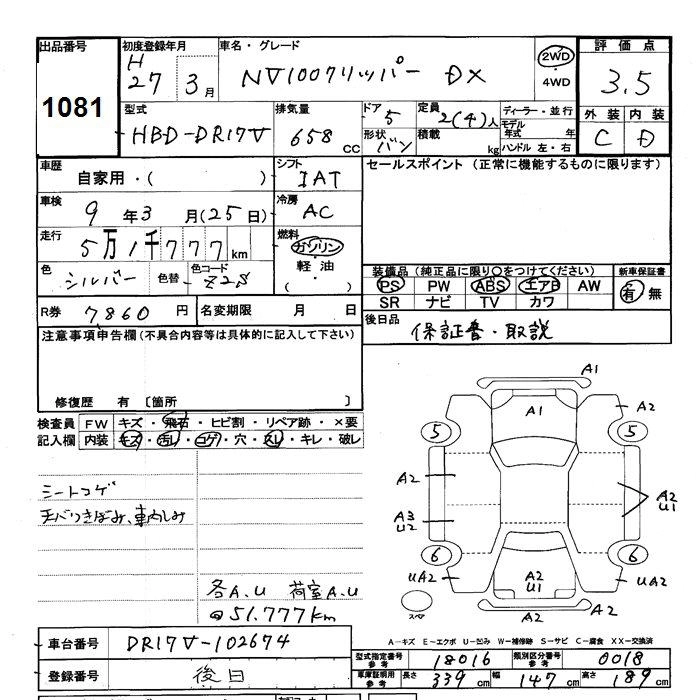 出品番号 1081
初度登録年月 H 27 3月
車名・グレード NV100クリッパー DX
2WD ・ 4WD
評価点 3.5
外装 C 内装 D
型式 HBD-DR17V
排気量 658 CC
ドア 5
形状 バン
定員 2(4)人
積載 kg
ディーラー・並行
モデル年式 年
ハンドル 左・右
車歴 自家用・( )
シフト IAT
セールスポイント (正常に機能するものに限ります)
車検 9年3月(25日)
冷房 AC
走行 5万1千777km
燃料 ガソリン・軽油・( )
色 シルバー 色替 色コード Z2S
装備品(純正品に限り○をつけてください) 新車保証書
PS PW ABS エアB AW 有・無
SR ナビ TV カワ
R券 7860円 名変期限 月 日
後日品 保証書・取説
注意事項申告欄(不具合内容等は具体的に記入して下さい)
修復歴 有〔箇所 〕
検査員記入欄 FW キズ・飛石・ヒビ割・リペア跡・×要
内装 キズ・汚れ・コゲ・穴・スレ・キレ・破レ
シートコゲ
天バリきばみ、車内しみ
各A.U 荷室A.U
51.777km
A1
A1
A2
5 5
A2
A2
U1
A3
U2
6 6
UA2
A2
U1
UA2
A2 A2
スペア
A-キズ E-エクボ U-凹み W-補修跡 S-サビ C-腐食 XX-交換済
車台番号 DR17V-102674
登録番号 後日
型式指定番号 参考 18016 類別区分番号 参考 0018
車庫証明用 参考 長さ 339cm 幅 147cm 高さ 189cm